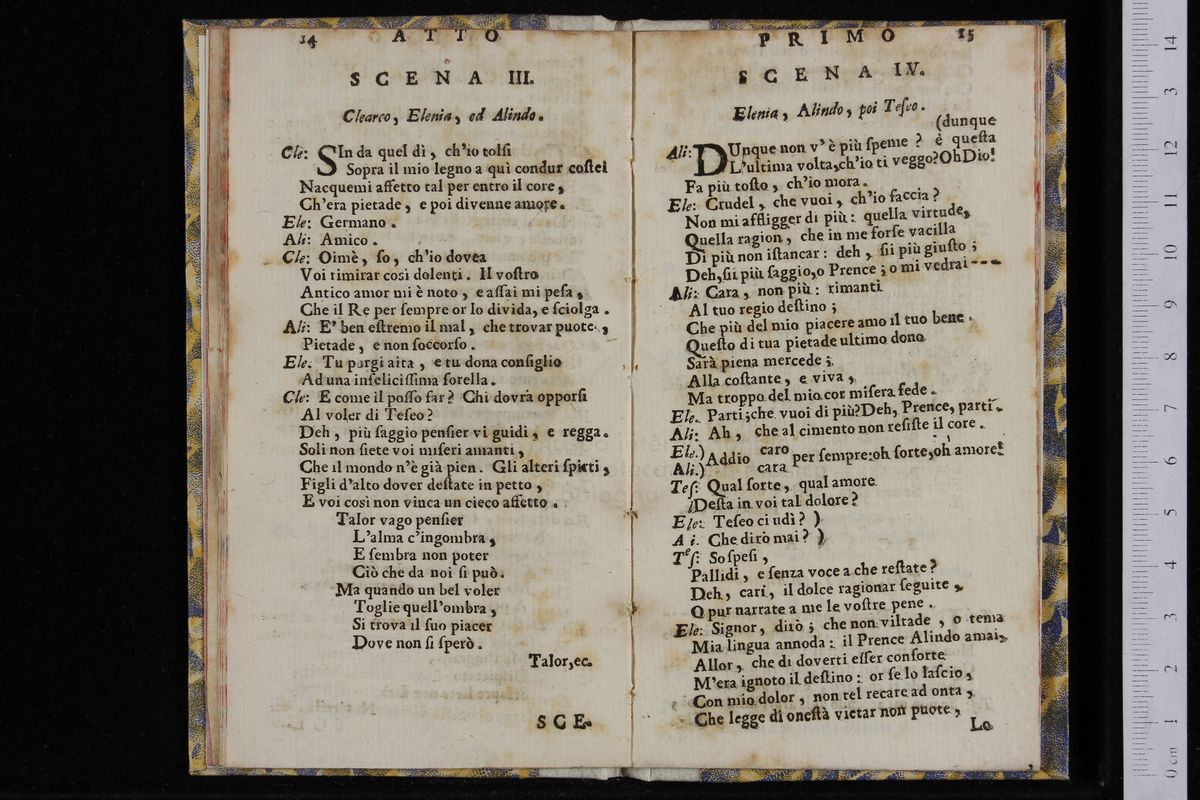 14 ATTO
SCENA III.
Clearco, Elenia, ed Alindo.
Cle: SIn da quel dì, ch'io tolſi
Sopra il mio legno a quì condur coſtei
Nacquemi affetto tal per entro il core,
Ch'era pietade, e poi divenne amore.
Ele: Germano.
Ali: Amico.
Cle: Oimè, ſo, ch'io dovea
Voi rimirar così dolenti. Il voſtro
Antico amor mi è noto, e aſſai mi peſa,
Che il Re per ſempre or lo divida, e ſciolga.
Ali: E' ben eſtremo il mal, che trovar puote,
Pietade, e non ſoccorſo.
Ele. Tu porgi aita, e tu dona conſiglio
Ad una infeliciſſima ſorella.
Cle: E come il poſſo far? Chi dovrà opporſi
Al voler di Teſeo?
Deh, più ſaggio penſier vi guidi, e regga.
Soli non ſiete voi miſeri amanti,
Che il mondo n'è già pien. Gli alteri ſpirti,
Figli d'alto dover deſtate in petto,
E voi così non vinca un cieco affetto.
Talor vago penſier
L'alma c'ingombra,
E ſembra non poter
Ciò che da noi ſi può.
Ma quando un bel voler
Toglie quell'ombra,
Si trova il ſuo piacer
Dove non ſi ſperò.
Talor, ec.
SCE-
PRIMO 15
SCENA IV.
Elenia, Alindo, poi Teſeo.
(dunque
Ali: DUnque non v'è più ſpeme? è queſta
L'ultima volta, ch'io ti veggo? Oh Dio!
Fa più toſto, ch'io mora.
Ele: Crudel, che vuoi, ch'io faccia?
Non mi affligger di più: quella virtude,
Quella ragion, che in me forſe vacilla
Di più non iſtancar: deh, ſii più giuſto;
Deh, ſii più ſaggio, o Prence; o mi vedrai ---
Ali: Cara, non più: rimanti
Al tuo regio deſtino;
Che più del mio piacere amo il tuo bene.
Queſto di tua pietade ultimo dono
Sarà piena mercede;
Alla coſtante, e viva,
Ma troppo del mio cor miſera fede.
Ele. Parti; che vuoi di più? Deh, Prence, parti.
Ali: Ah, che al cimento non reſiſte il core.
Ele.) Addio caro per ſempre: oh ſorte, oh amore!
Ali.) cara
Teſ: Qual ſorte, qual amore
Deſta in voi tal dolore?
Ele: Teſeo ci udì? )
A i. Che dirò mai? )
Teſ: Soſpeſi,
Pallidi, e ſenza voce a che reſtate?
Deh, cari, il dolce ragionar ſeguite,
O pur narrate a me le voſtre pene.
Ele: Signor, dirò; che non viltade, o tema
Mia lingua annoda: il Prence Alindo amai,
Allor, che di doverti eſſer conſorte
M'era ignoto il deſtino: or ſe lo laſcio,
Con mio dolor, non tel recare ad onta,
Che legge di oneſtà vietar non puote,
Lo